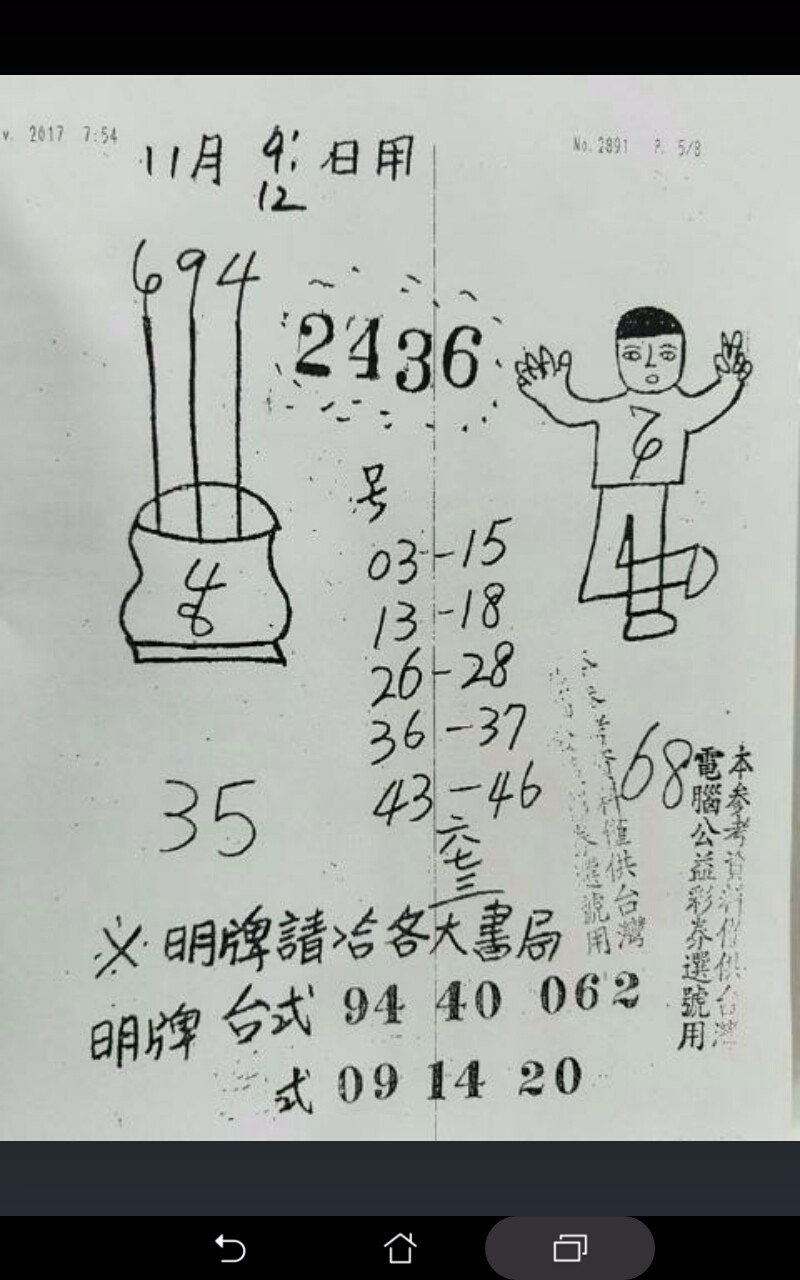 v. 2017 7:54
No. 2891 P. 5/8
11月 9 日用
12
6 9 4
2436
号
03-15
13-18
26-28
36-37
43-46
六
七
三
4
8
35
68
本参考資料僅供台灣
電腦公益彩券選號用
僅供台灣
選號用
※ 明牌請洽各大書局
明牌 台式 94 40 062
式 09 14 20